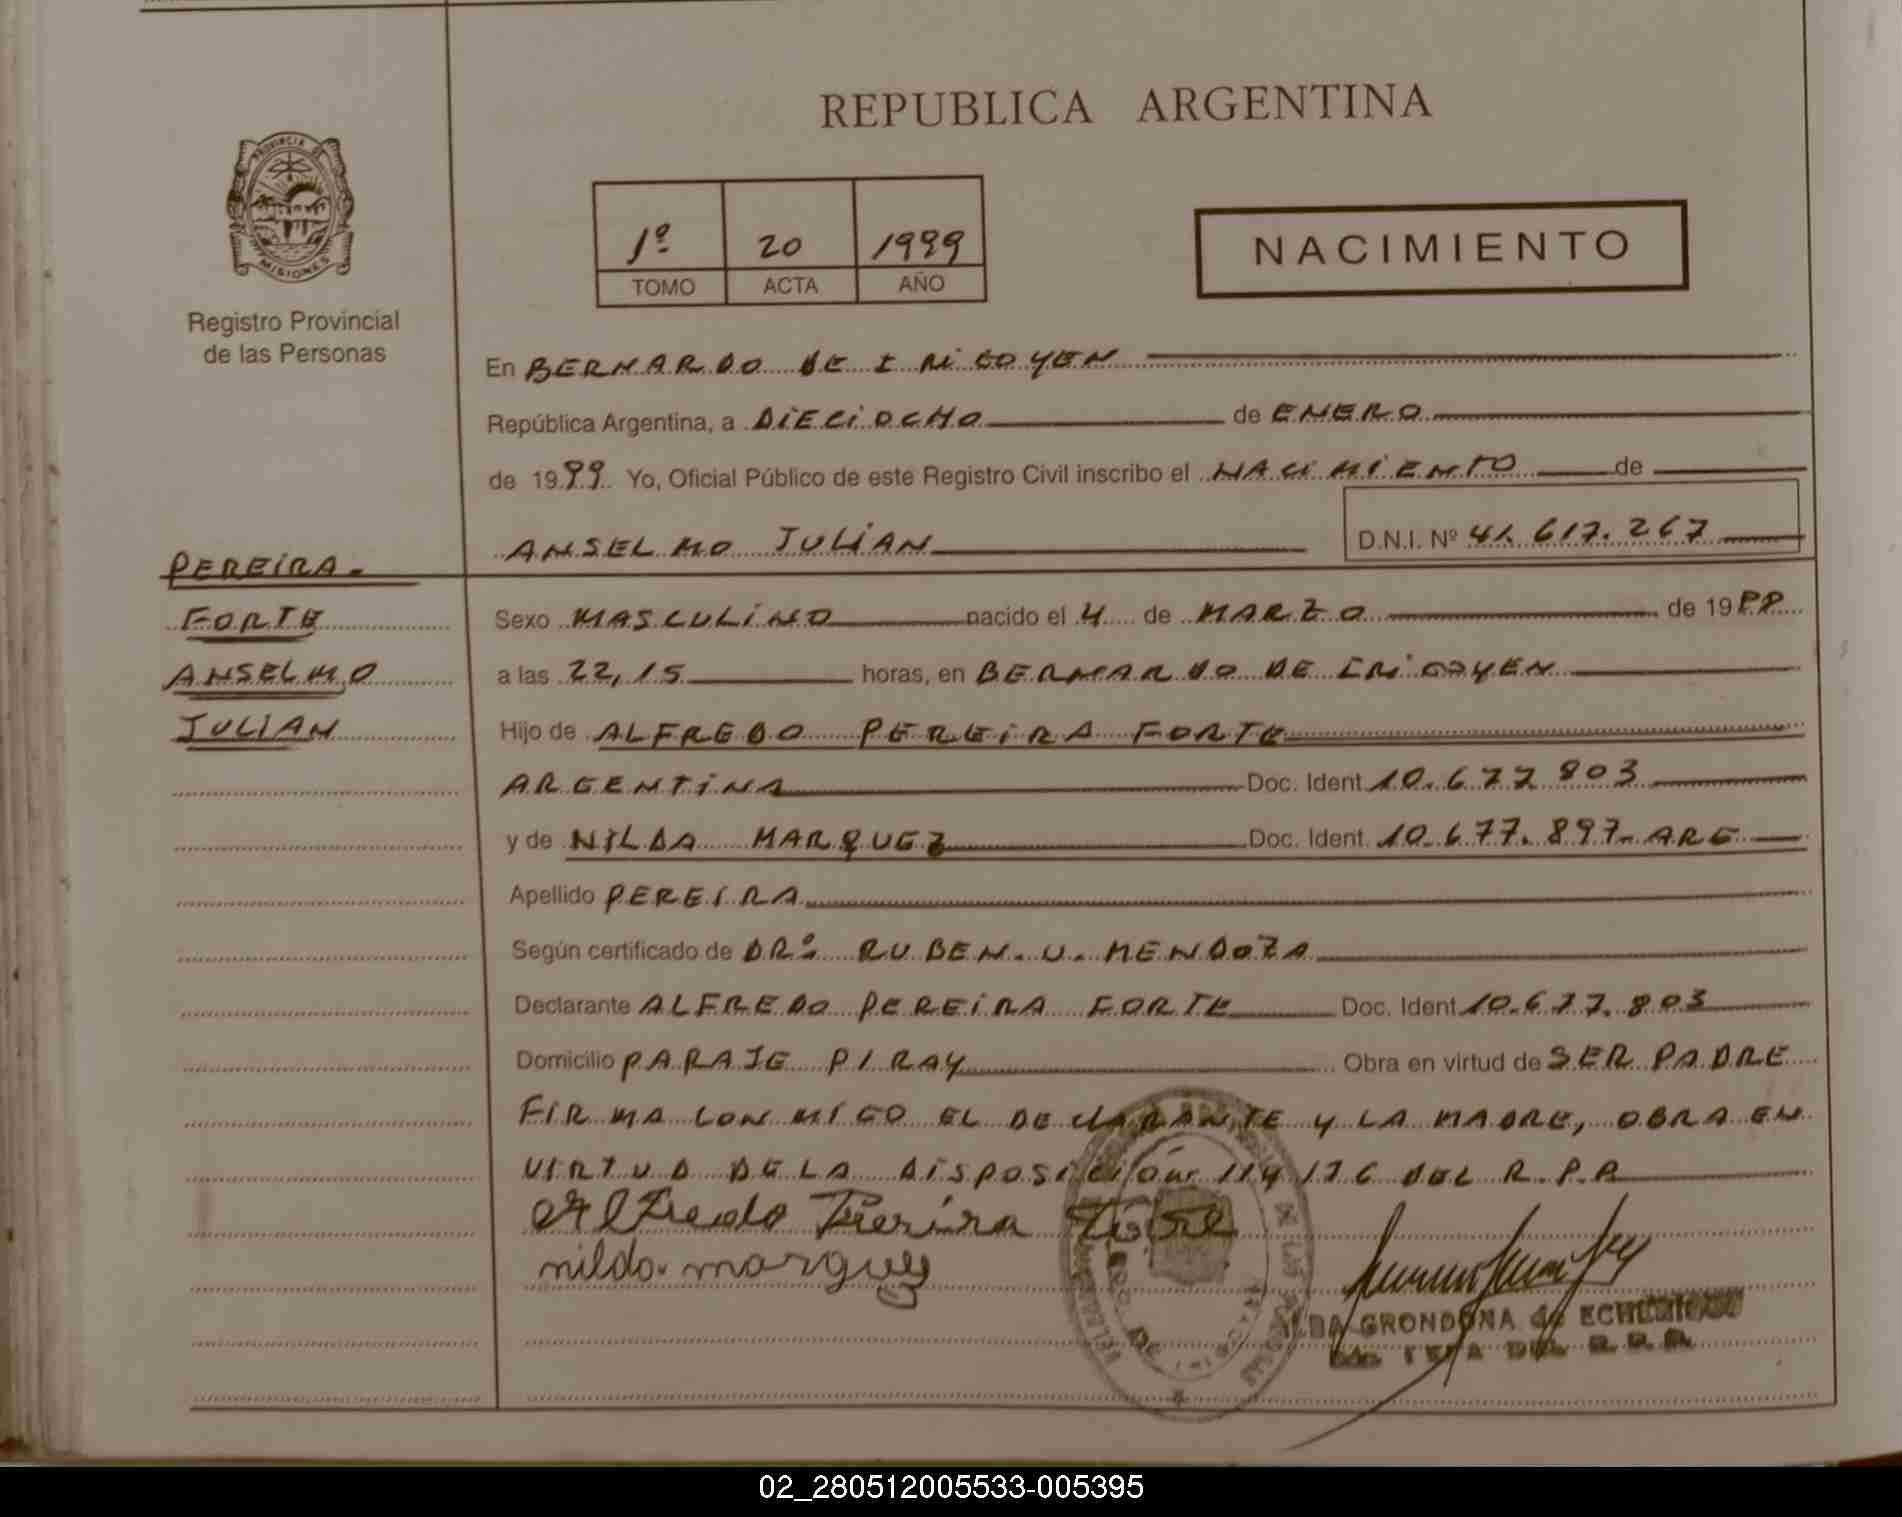 REPUBLICA ARGENTINA
PROVINCIA DE
MISIONES
Registro Provincial
de las Personas
1º 20 1999
TOMO ACTA AÑO
NACIMIENTO
En BERNARDO DE IRIGOYEN
República Argentina, a DIECIOCHO de ENERO
de 1999 Yo, Oficial Público de este Registro Civil inscribo el NACIMIENTO de
ANSELMO JULIAN D.N.I. Nº 41.617.267
PEREIRA-
FORTE
ANSELMO
JULIAN
Sexo MASCULINO nacido el 4 de MARZO de 19
a las 22,15 horas, en BERNARDO DE IRIGOYEN
Hijo de ALFREDO PEREIRA FORTE
ARGENTINA Doc. Ident 10.677.803
y de NILDA MARQUEZ Doc. Ident. 10.677.897- ARG
Apellido PEREIRA
Según certificado de DRº RUBEN. U. MENDOZA
Declarante ALFREDO PEREIRA FORTE Doc. Ident 10.677.803
Domicilio PARAJE PIRAY Obra en virtud de SER PADRE
FIRMA CONMIGO EL DECLARANTE Y LA MADRE, OBRA EN
VIRTUD DE LA DISPOSICIÓN 114/76 DEL R.P.P
Alfredo Pereira Forte
nilda marquez
GRONDONA de
DEL R.P.P.
02_280512005533-005395